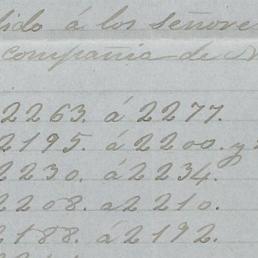 dido á los señore
compañia de N
2263. á 2277.
2195. á 2200. y
2230. á 2234.
2208. a 2210.
2188. á 2192.